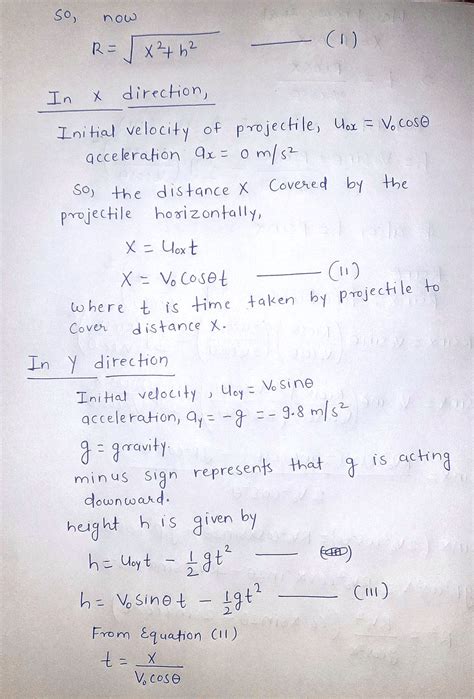 So, now
R = √(x² + h²) ——— (I)
In x direction,
Initial velocity of projectile, u₀ₓ = V₀cosθ
acceleration aₓ = 0 m/s²
So, the distance X Covered by the
projectile horizontally,
X = u₀ₓt
X = V₀ cosθt ——— (II)
where t is time taken by projectile to
Cover distance X.
In Y direction
Initial velocity, u₀y = V₀sinθ
acceleration, ay = -g = -9.8 m/s²
g = gravity.
minus sign represents that g is acting
downward.
height h is given by
h = u₀yt - ½gt² ———
h = V₀sinθ t - ½gt² ——— (III)
From Equation (II)
t = X / V₀cosθ